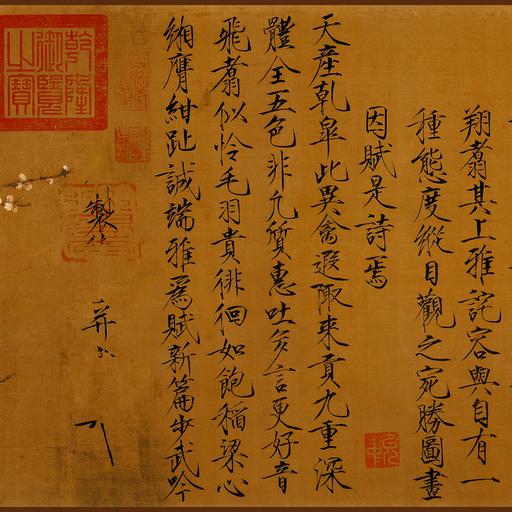 翔翥其上雅詫容與自有一
種態度縱目觀之宛勝圖畫
因賦是詩焉
天產乹皐此異禽遐陬來貢九重深
體全五色非凡質惠吐多言更好音
飛翥似怜毛羽貴徘徊如飽稻粱心
緗膺紺趾誠端雅爲賦新篇步武吟
製
并
乾隆御覽之寶